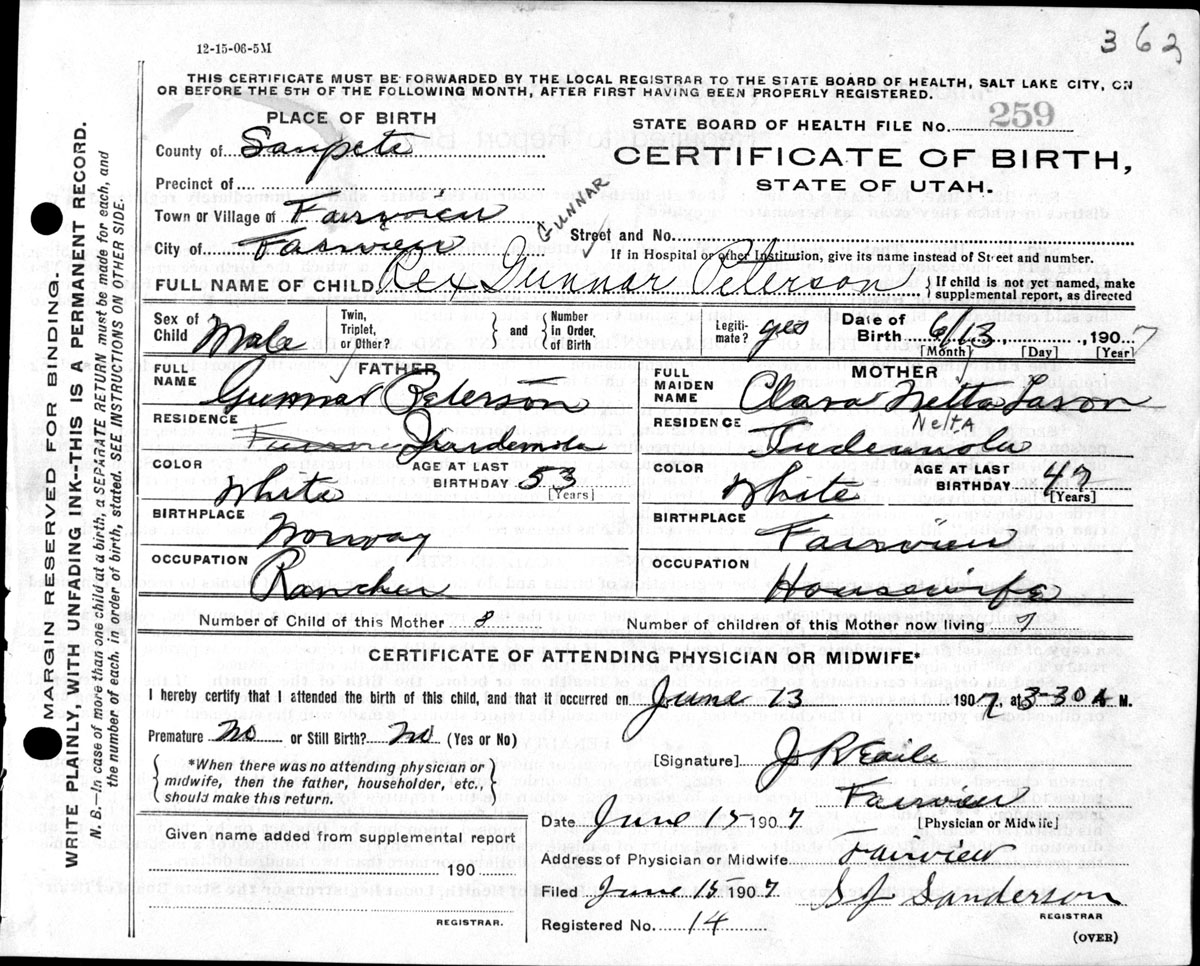 362
12-15-06-5M
THIS CERTIFICATE MUST BE FORWARDED BY THE LOCAL REGISTRAR TO THE STATE BOARD OF HEALTH, SALT LAKE CITY, ON
OR BEFORE THE 5TH OF THE FOLLOWING MONTH, AFTER FIRST HAVING BEEN PROPERLY REGISTERED.
MARGIN RESERVED FOR BINDING
WRITE PLAINLY, WITH UNFADING INK--THIS IS A PERMANENT RECORD.
N. B.—In case of more than one child at a birth, a SEPARATE RETURN must be made for each, and
the number of each, in order of birth, stated. SEE INSTRUCTIONS ON OTHER SIDE.
PLACE OF BIRTH
STATE BOARD OF HEALTH FILE No. 259
County of Sanpete
CERTIFICATE OF BIRTH,
STATE OF UTAH.
Precinct of
Town or Village of Fairview
GUNNAR
Street and No.
City of Fairview
If in Hospital or other Institution, give its name instead of Street and number.
FULL NAME OF CHILD Rex Gunnar Peterson
{ If child is not yet named, make
supplemental report, as directed
Sex of Child Male
Twin, Triplet, or Other? } and { Number in Order of Birth
Legiti-mate? yes
Date of Birth 6/13, 1907
[Month] [Day] [Year]
FATHER
FULL NAME Gunnar Peterson
RESIDENCE
COLOR White
AGE AT LAST BIRTHDAY 53
[Years]
BIRTHPLACE Norway
OCCUPATION Rancher
MOTHER
FULL MAIDEN NAME Clara Netta Lason
NeltA
RESIDENCE
COLOR White
AGE AT LAST BIRTHDAY 42
[Years]
BIRTHPLACE Fairview
OCCUPATION Housewife
Number of Child of this Mother 8
Number of children of this Mother now living 7
CERTIFICATE OF ATTENDING PHYSICIAN OR MIDWIFE*
I hereby certify that I attended the birth of this child, and that it occurred on June 13 1907, at 3-30 A M.
Premature No or Still Birth? No (Yes or No)
{ *When there was no attending physician or
midwife, then the father, householder, etc.,
should make this return. }
[Signature] J R
Fairview
[Physician or Midwife]
Date June 15 1907
Address of Physician or Midwife Fairview
Filed June 15 1907
S J Sanderson
REGISTRAR
Registered No. 14
(OVER)
Given name added from supplemental report
190
REGISTRAR.